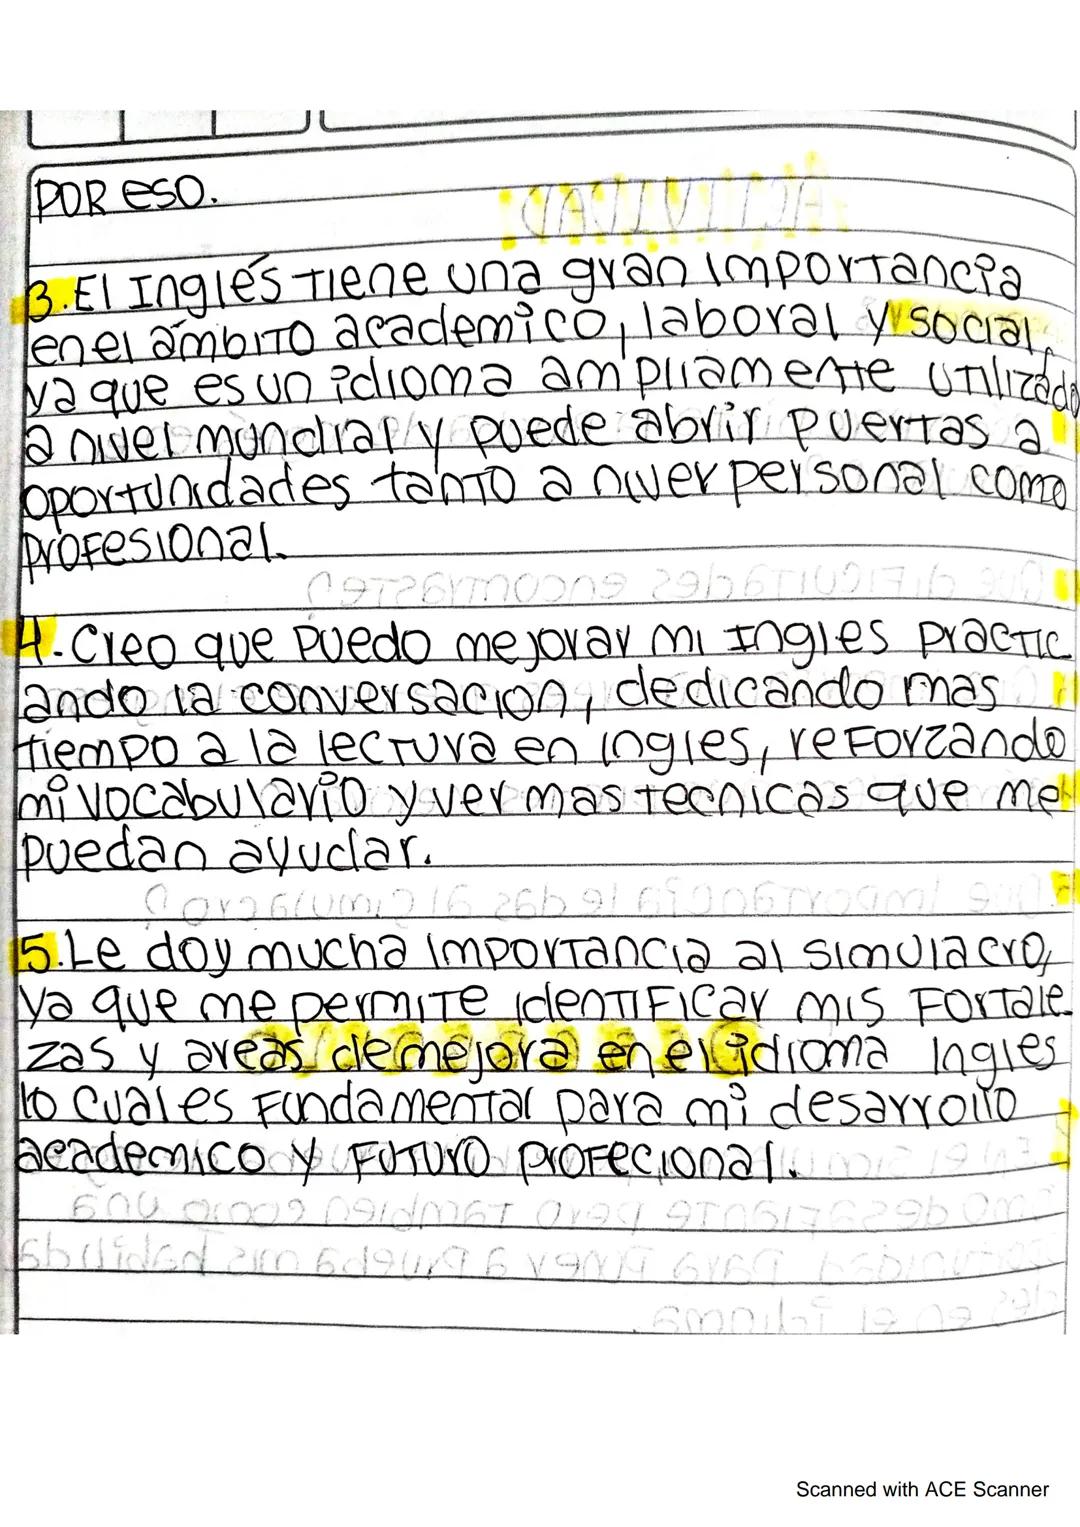 POR eso.
3. El Inglés tiene una gran importancia
en el ámbito academico, laboral y social,
ya que es un idioma ampliamente utilizado
a nivel mundial y puede abrir puertas a
oportunidades tanto a nivel personal como
profesional.
4. Creo que puedo mejorar mi Ingles practic
ando la conversacion, dedicando mas
tiempo a la lectura en ingles, reforzando
mi vocabulario y ver mas tecnicas que me
puedan ayudar.
5. Le doy mucha importancia al simulacro,
ya que me permite identificar mis fortale
zas y areas de mejora en el idioma Ingles
lo cual es fundamental para mi desarrollo
academico y futuro profecional.
Scanned with ACE Scanner